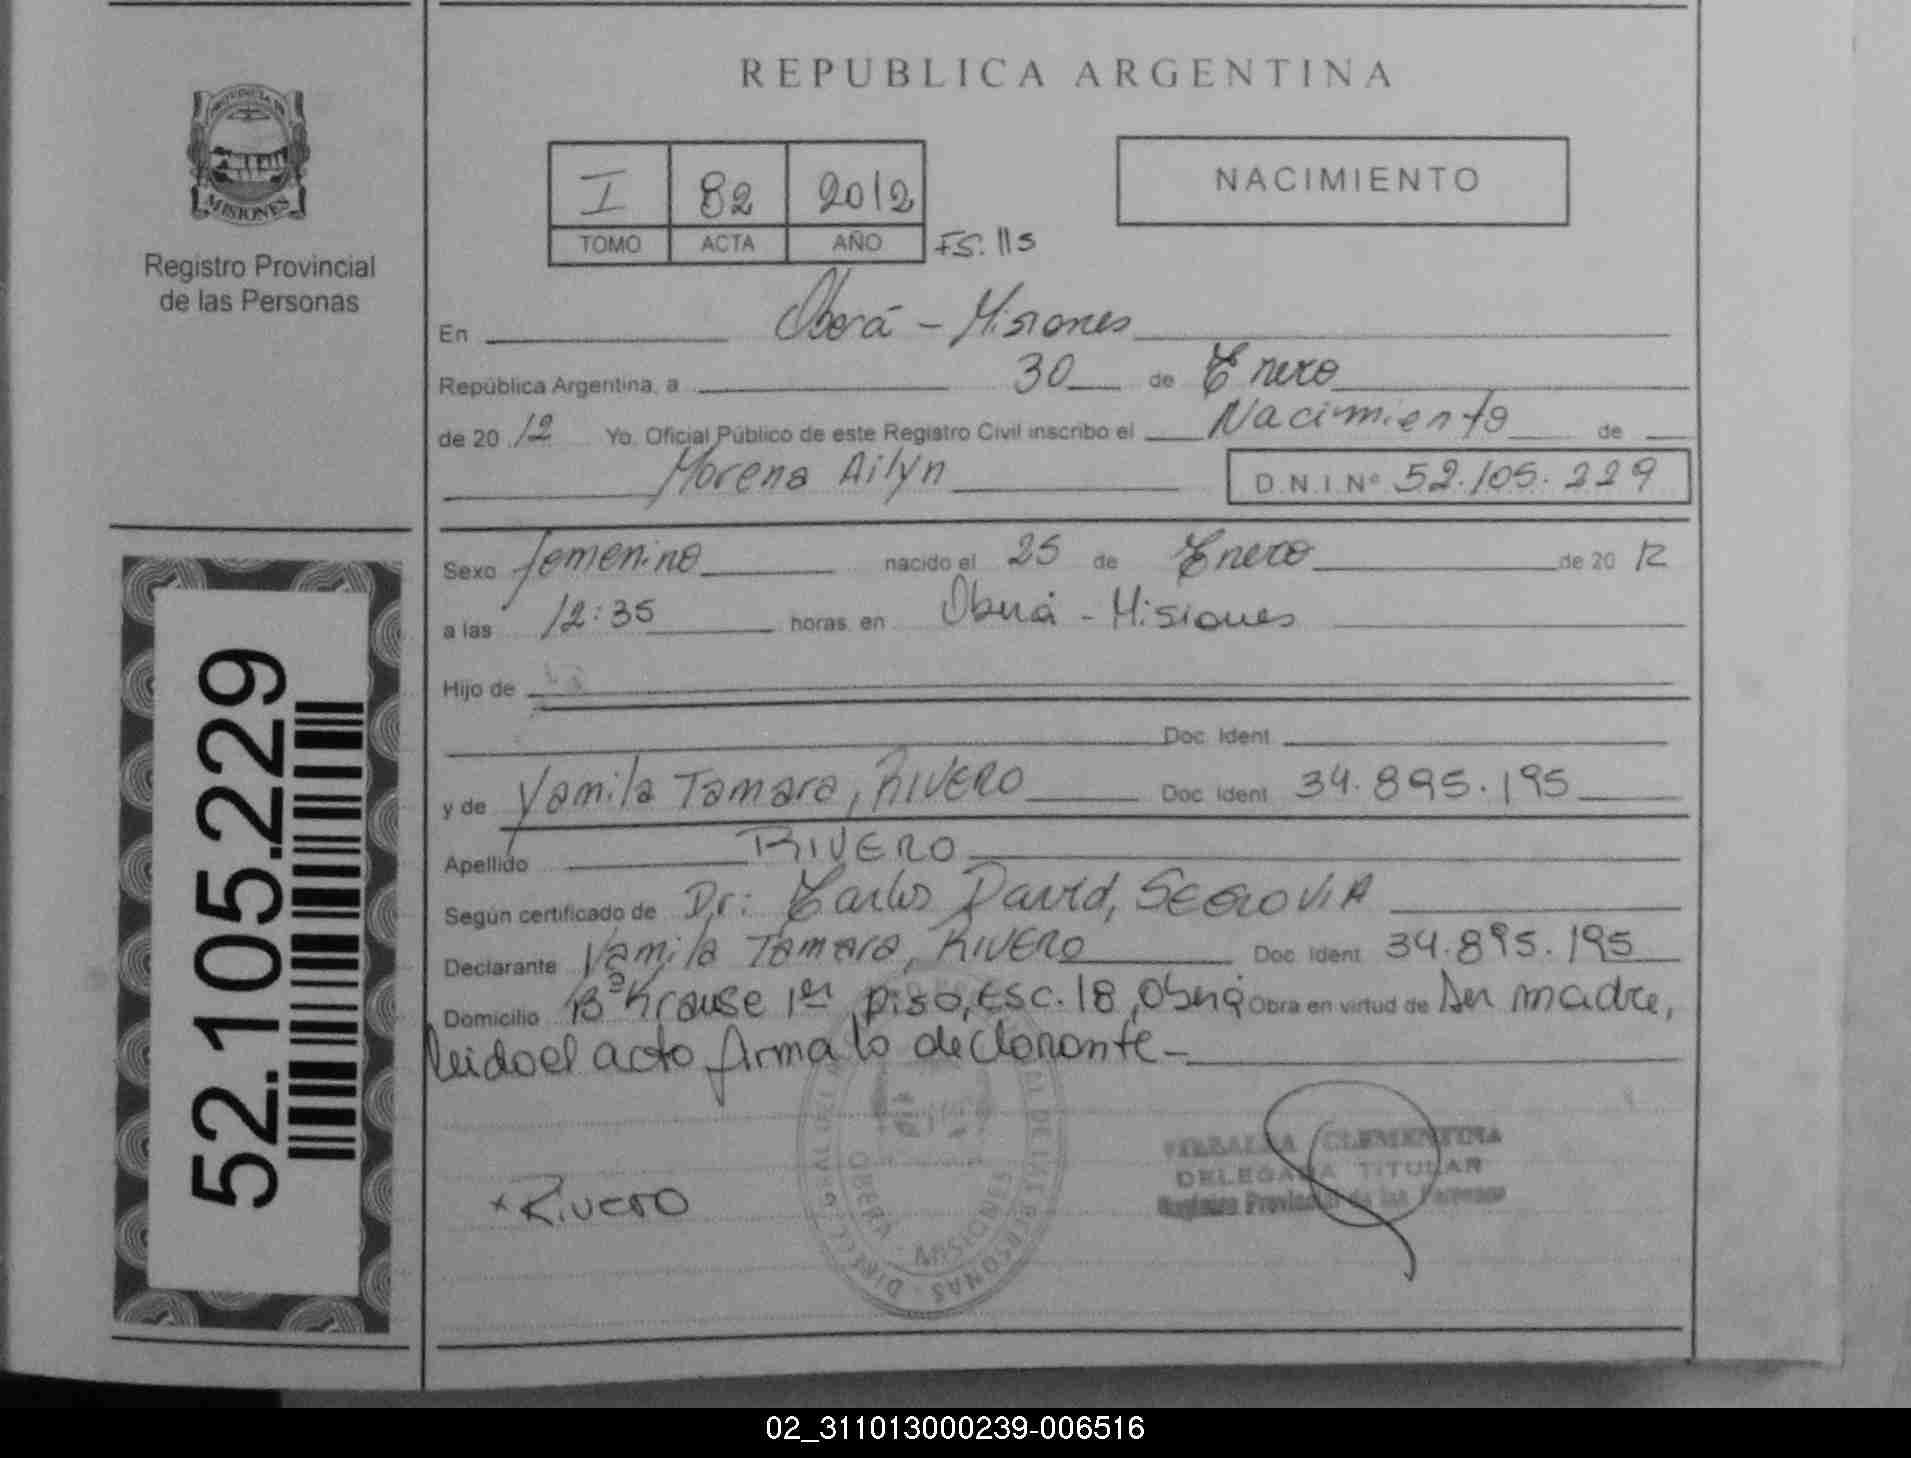 PROVINCIA DE
MISIONES
Registro Provincial
de las Personas
52.105.229
REPUBLICA ARGENTINA
I 82 2012
TOMO ACTA AÑO FS. 115
NACIMIENTO
En Oberá - Misiones
República Argentina, a 30 de Enero
de 20 12 Yo, Oficial Público de este Registro Civil inscribo el Nacimiento de
Morena Ailyn D.N.I. Nº 52.105.229
Sexo femenino nacido el 25 de Enero de 20 12
a las 12:35 horas, en Oberá - Misiones
Hijo de
Doc. Ident.
y de Yamila Tamara, RIVERO Doc. Ident. 34.895.195
Apellido RIVERO
Según certificado de Dr: Carlos David, SEGOVIA
Declarante Yamila Tamara, RIVERO Doc. Ident. 34.895.195
Domicilio Bº Krause 1er piso, Esc. 18, Oberá Obra en virtud de ser madre,
leido el acto firma la declarante-
x Rivero
CLEMENTINA
DELEGADA TITULAR
Registro Provincial de las Personas
OBERÁ - MISIONES
02_311013000239-006516